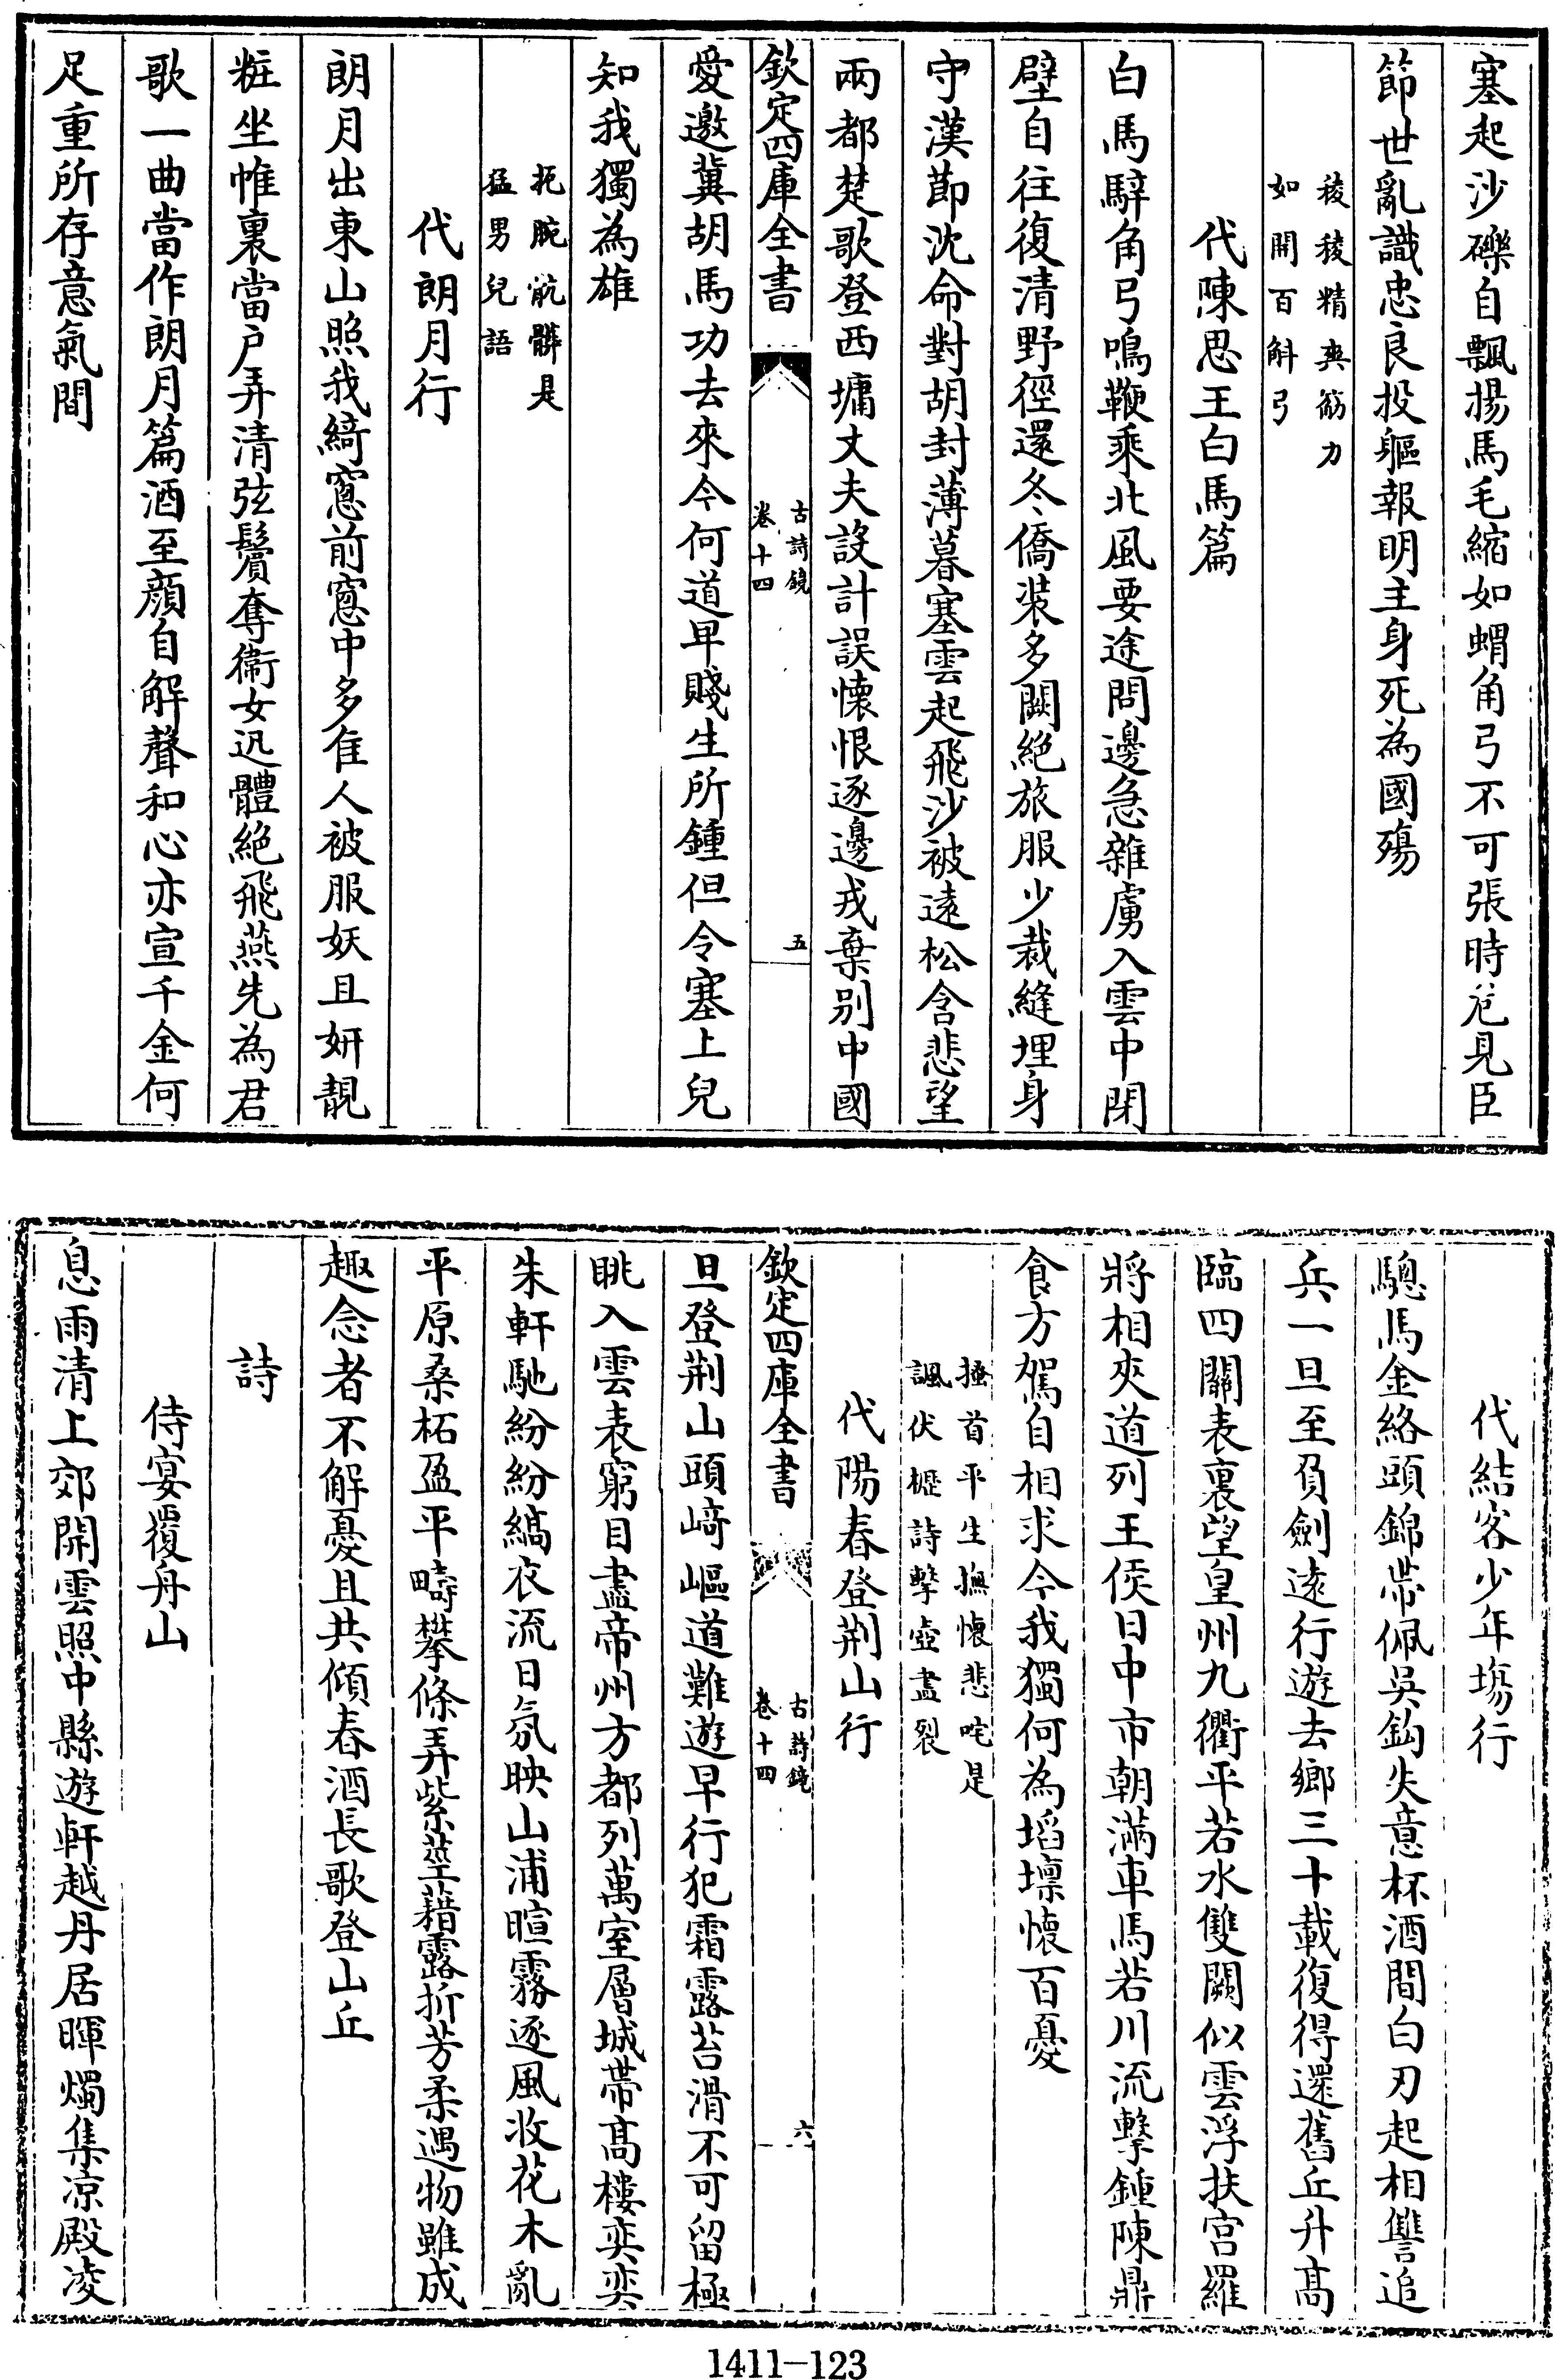 塞起沙礫自飄揚馬毛縮如蝟角弓不可張時危見臣
節世亂識忠良投軀報明主身死為國殤
稜稜精爽筋力
如開百斛弓
代陳思王白馬篇
白馬騂角弓鳴鞭乘北風要途問邊急雜虜入雲中閉
壁自往復清野徑還冬僑裝多闕絕旅服少裁縫埋身
守漢節沈命對胡封薄暮塞雲起飛沙被遠松含悲望
兩都楚歌登西墉丈夫設計誤懷恨逐邊戎棄別中國
欽定四庫全書
古詩鏡
卷十四
五
愛邀冀胡馬功去來今何道早賤生所鍾但令塞上兒
知我獨為雄
扼腕骯髒是
猛男兒語
代朗月行
朗月出東山照我綺窻前窻中多隹人被服妖且妍靚
粧坐帷裏當户弄清弦鬢奪衞女迅體絕飛燕先為君
歌一曲當作朗月篇酒至顏自解聲和心亦宣千金何
足重所存意氣間
代結客少年塲行
驄馬金絡頭錦帶佩吳鈎失意杯酒間白刃起相讐追
兵一旦至負劍遠行遊去鄉三十載復得還舊丘升髙
臨四關表裏望皇州九衢平若水雙闕似雲浮扶宫羅
將相夾道列王侯日中市朝滿車馬若川流擊鍾陳鼎
食方駕自相求今我獨何為塪壈懷百憂
搔首平生撫懷悲咤是
諷伏櫪詩擊壺盡裂
代陽春登荆山行
欽定四庫全書
古詩鏡
卷十四
六
旦登荆山頭﨑嶇道難遊早行犯霜露苔滑不可留極
眺入雲表窮目盡帝州方都列萬室層城帶髙樓奕奕
朱軒馳紛紛縞衣流日氛映山浦暄霧逐風收花木亂
平原桑柘盈平疇攀條弄紫莖藉露折芳柔遇物雖成
趣念者不解憂且共傾春酒長歌登山丘
詩
侍宴覆舟山
息雨清上郊開雲照中縣遊軒越丹居暉燭集凉殿凌
1411-123